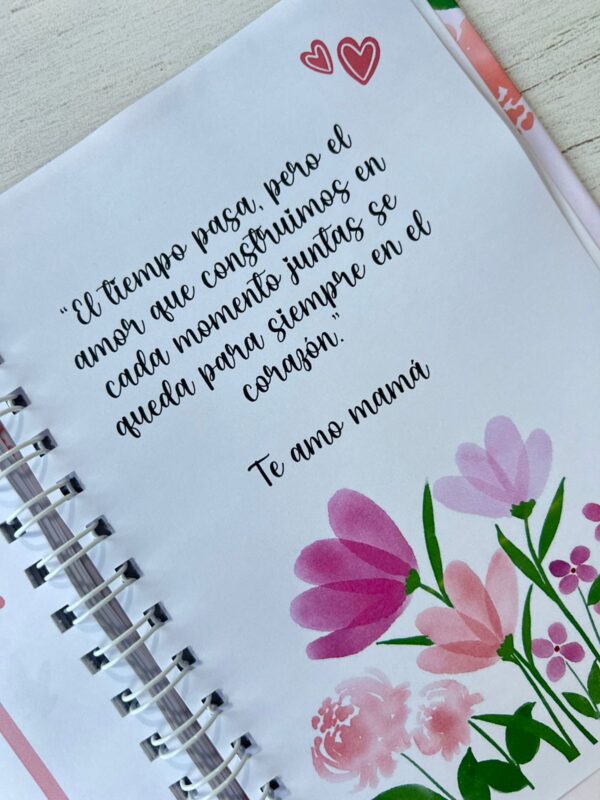 “El tiempo pasa, pero el
amor que construimos en
cada momento juntas se
queda para siempre en el
corazón.”
Te amo mamá